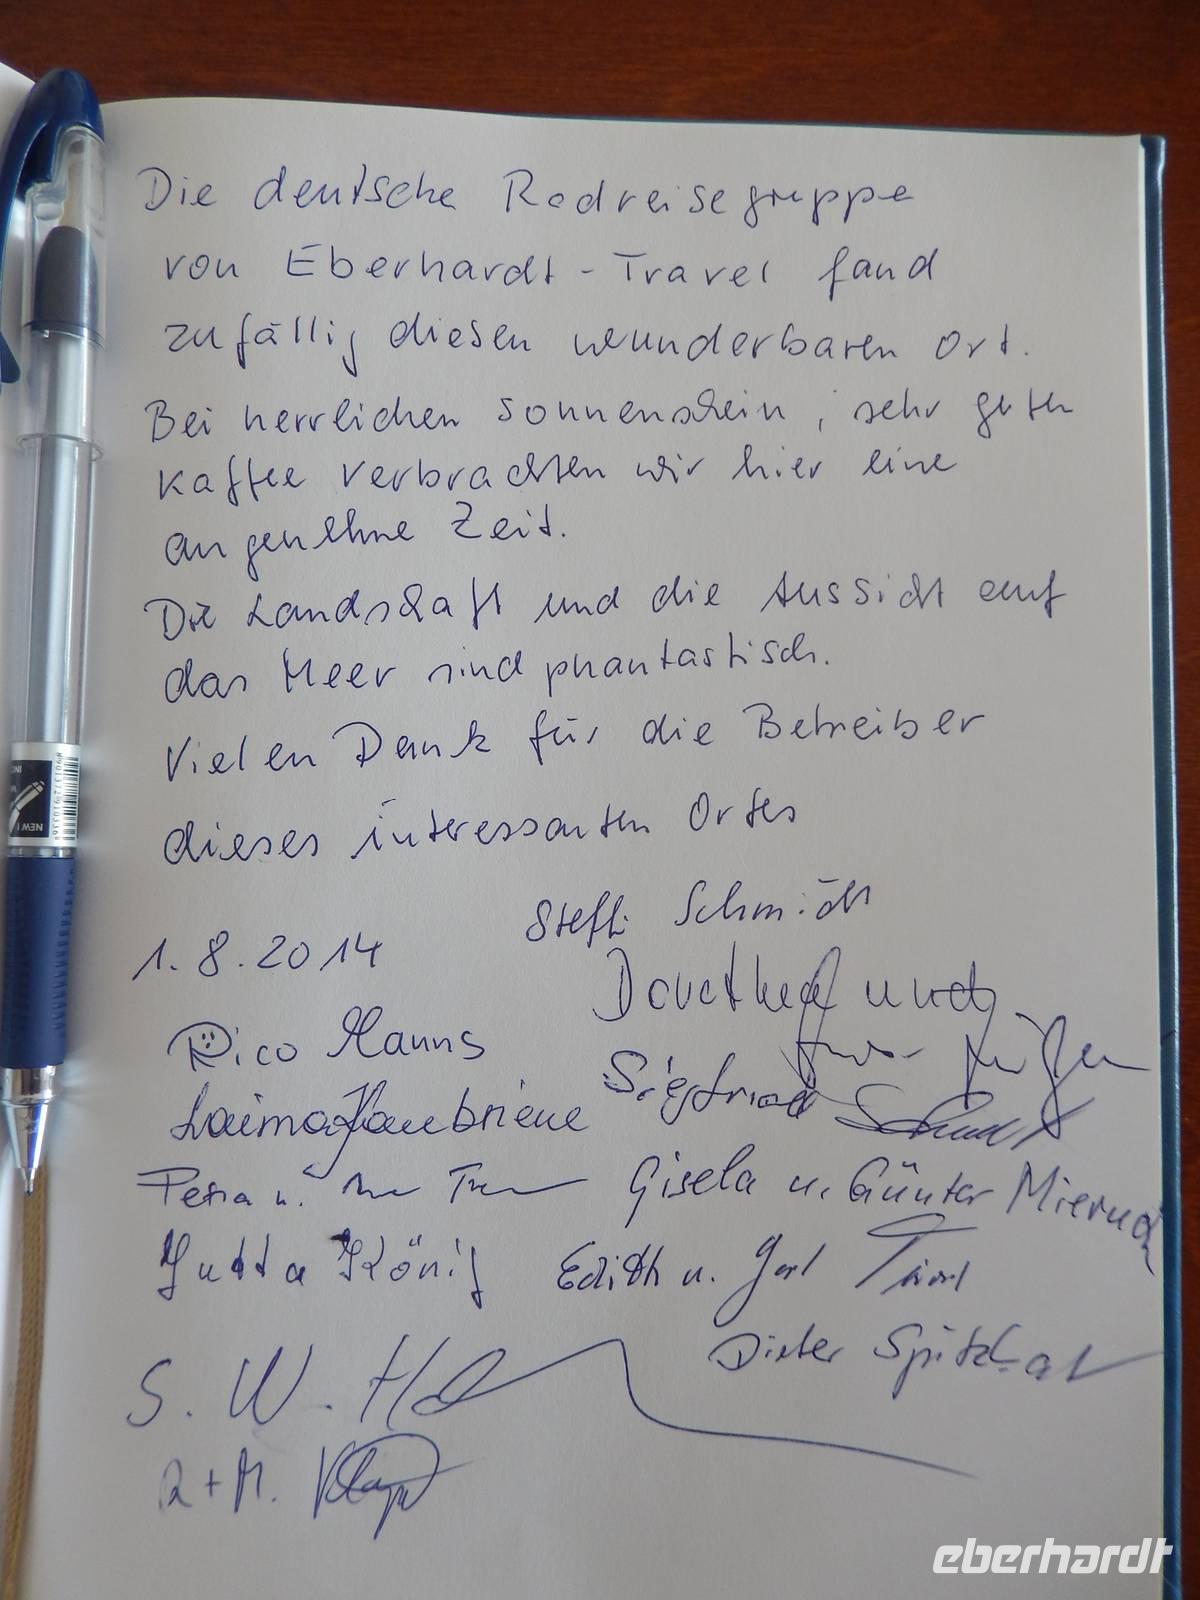 Die deutsche Radreisegruppe
von Eberhardt-Travel fand
zufällig diesen wunderbaren Ort.
Bei herrlichen Sonnenschein, sehr guten
Kaffee verbrachten wir hier eine
angenehme Zeit.
Die Landschaft und die Aussicht auf
das Meer sind phantastisch.
Vielen Dank für die Betreiber
dieses interessanten Ortes
Steffi Schmidt
1.8.2014
Dorothea und
Rico Manns
Siegfried
Laima
Petra u.
Gisela u. Günter
Jutta König
Edith u.
Dieter
S. W.
R + M.
NEW
eberhardt